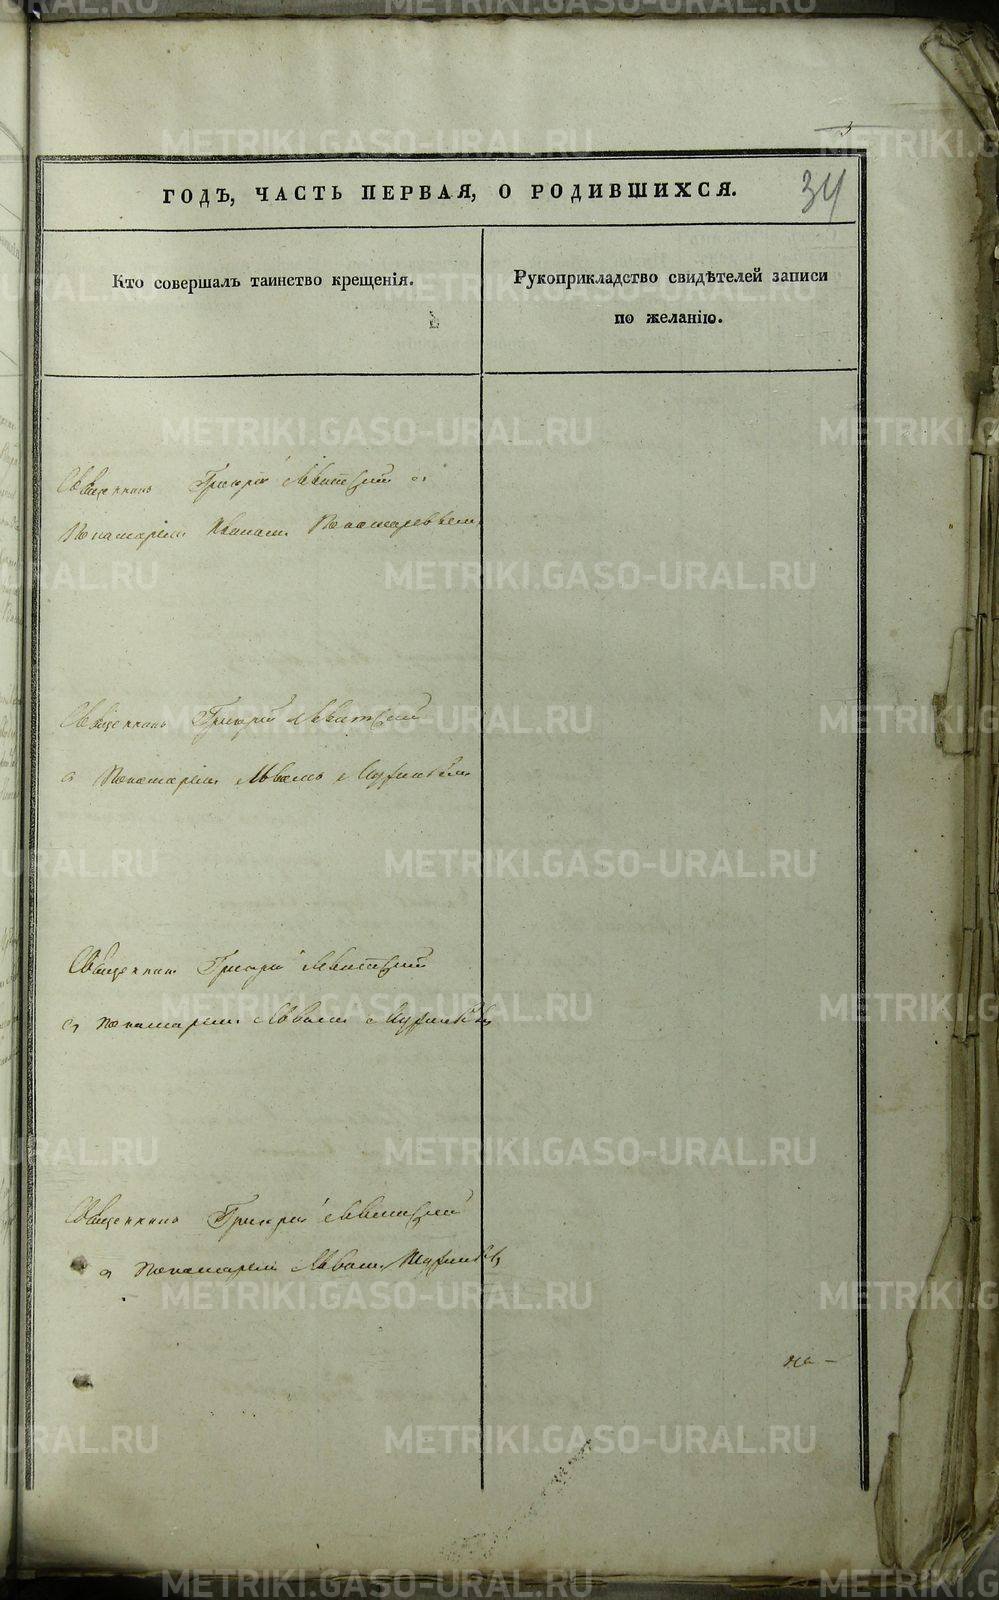 3
34
ГОДЪ, ЧАСТЬ ПЕРВАЯ, О РОДИВШИХСЯ.
Кто совершалъ таинство крещенія.
Рукоприкладство свидѣтелей записи
по желанію.
Священникъ Григорій Левитскій с
Пономаремъ Иваномъ Пономаревымъ
Священникъ Григорій Левитскій
с Пономаремъ Львомъ
Священникъ Григорій Левитскій
с пономаремъ Львомъ
Священникъ Григорій Левитскій
с Пономаремъ Львомъ
METRIKI.GASO-URAL.RU